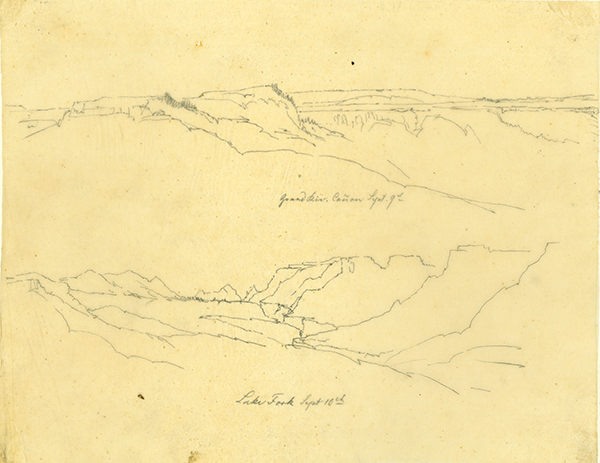 Grand Riv. Cañon Sept. 9th
Lake Fork Sept 10th